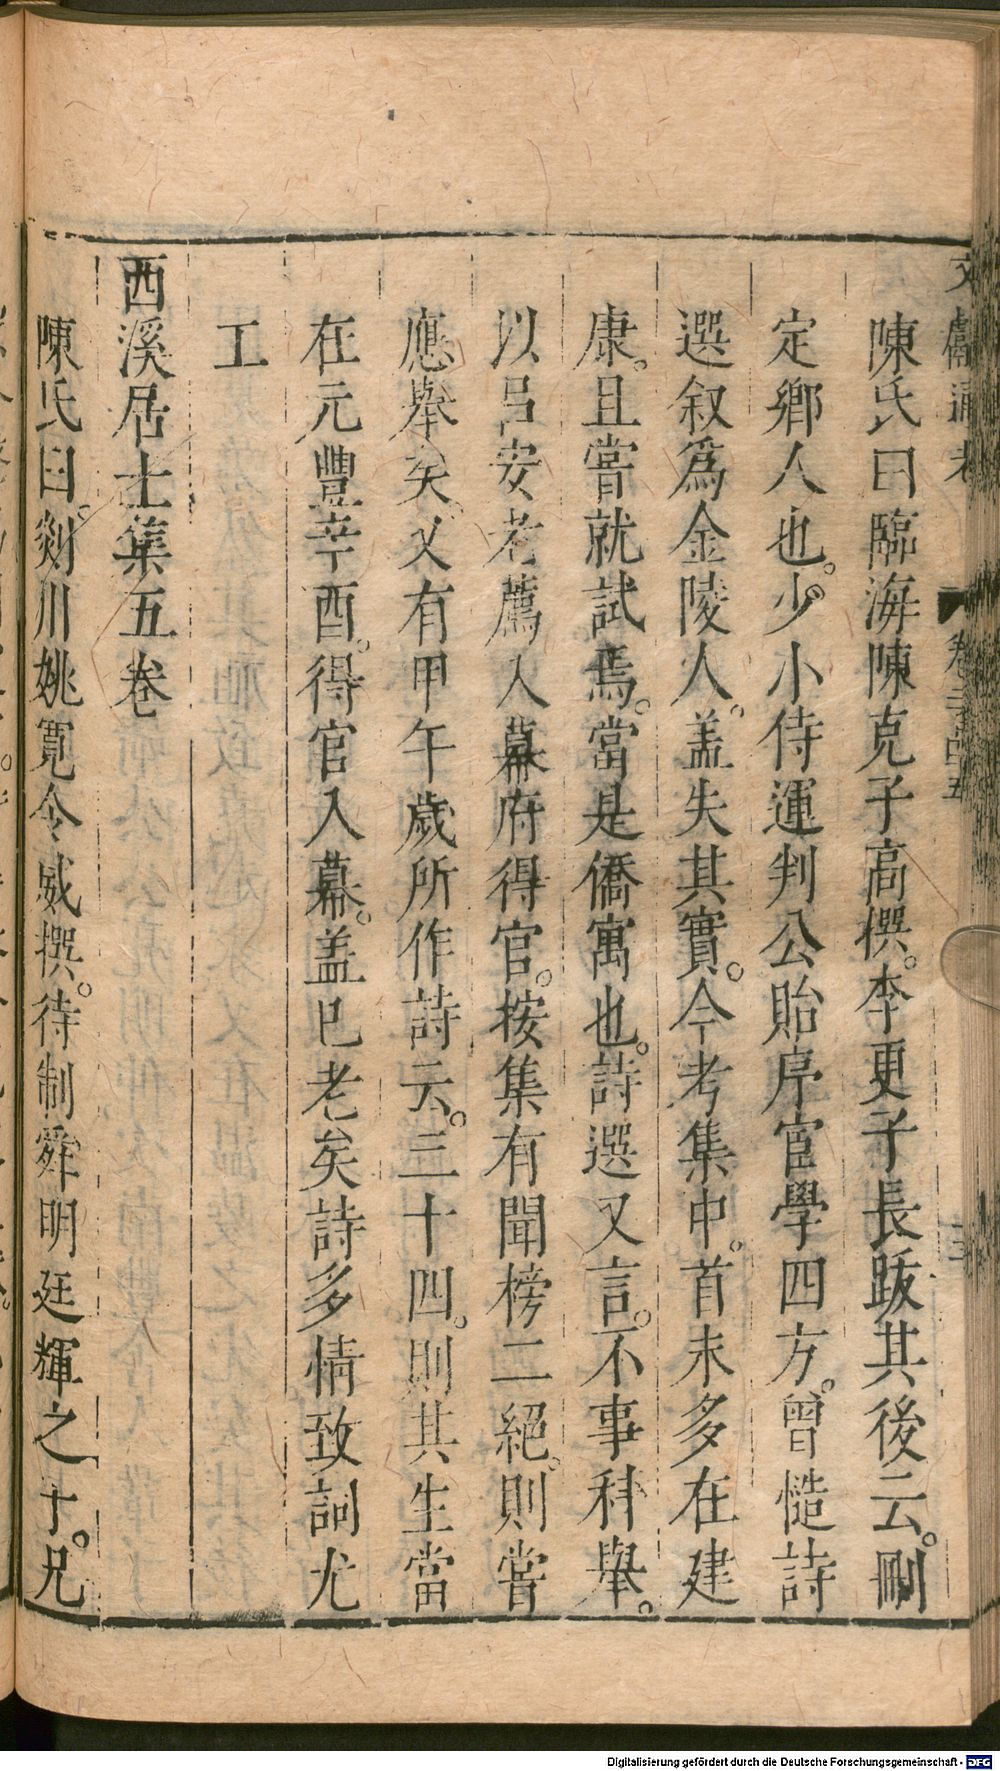 文獻通考 卷二百四五 十三
陳氏曰臨海陳克子高撰。李更子長跋其後云。刪
定鄉人也。少小侍運判公貽序宦學四方。曾慥詩
選叙爲金陵人。盖失其實。今考集中。首末多在建
康。且嘗就試焉。當是僑寓也。詩選又言。不事科舉。
以呂安老薦入幕府得官。按集有聞榜二絕。則嘗
應舉矣。又有甲午歲所作詩云。三十四。則其生當
在元豐辛酉。得官入幕。盖已老矣詩多情致詞尤
工
西溪居士集五卷
陳氏曰。剡川姚寬令威撰。待制舜明廷輝之子。兄
Digitalisierung gefördert durch die Deutsche Forschungsgemeinschaft - DFG